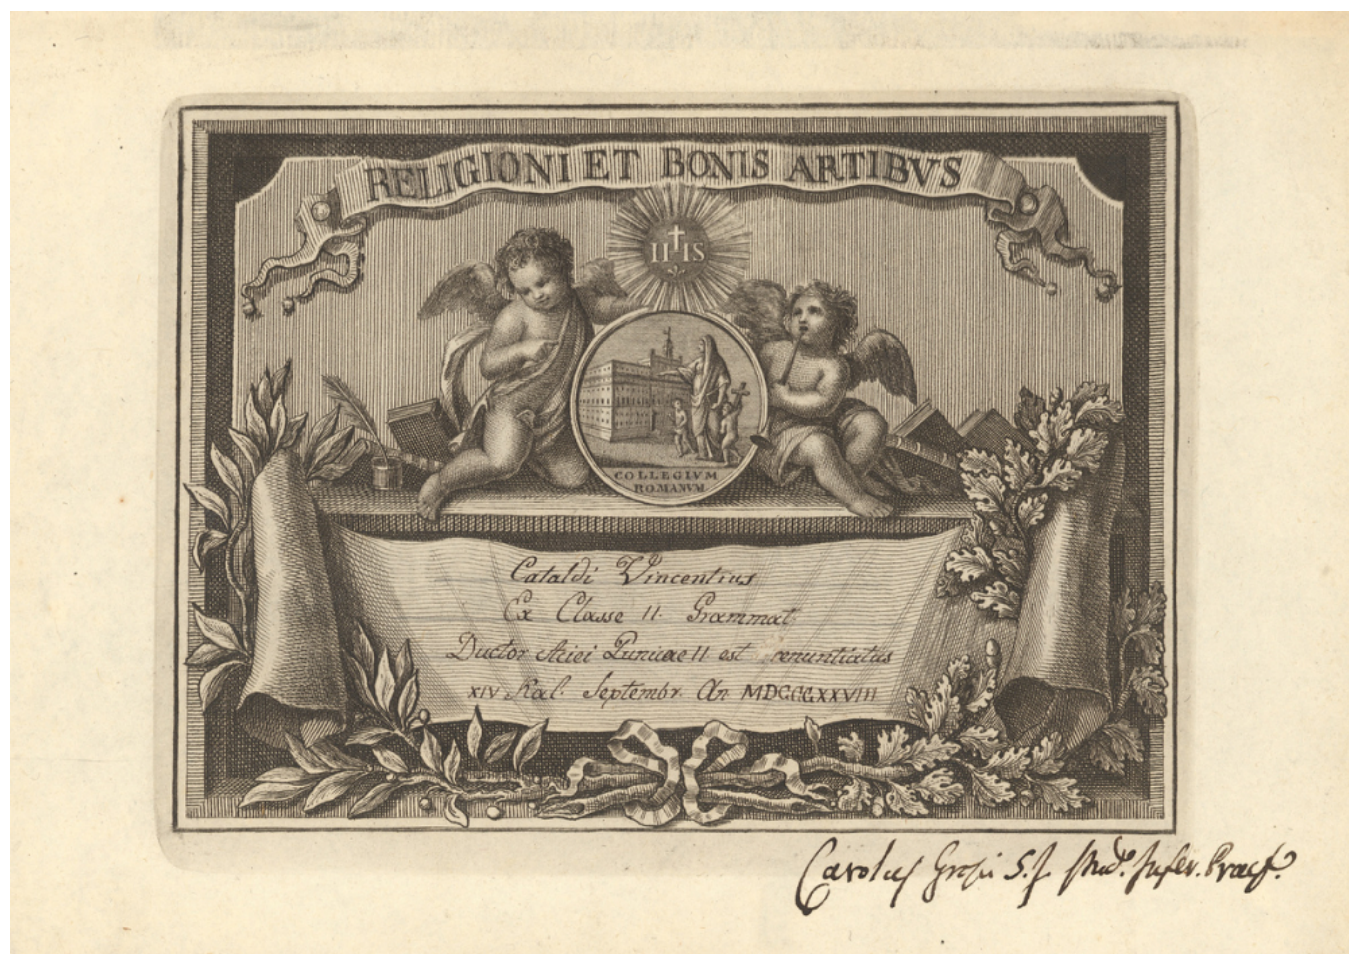 RELIGIONI ET BONIS ARTIBVS
IHS
COLLEGIVM
ROMANVM
Cataldi Vincentius
Ex Classe II. Grammat.
Ductor Aciei Punicae II est renuntiatus
XIV Kal. Septembr. An MDCCCXXVIII
Carolus Grossi S.J. Stud. Infer. Praef.